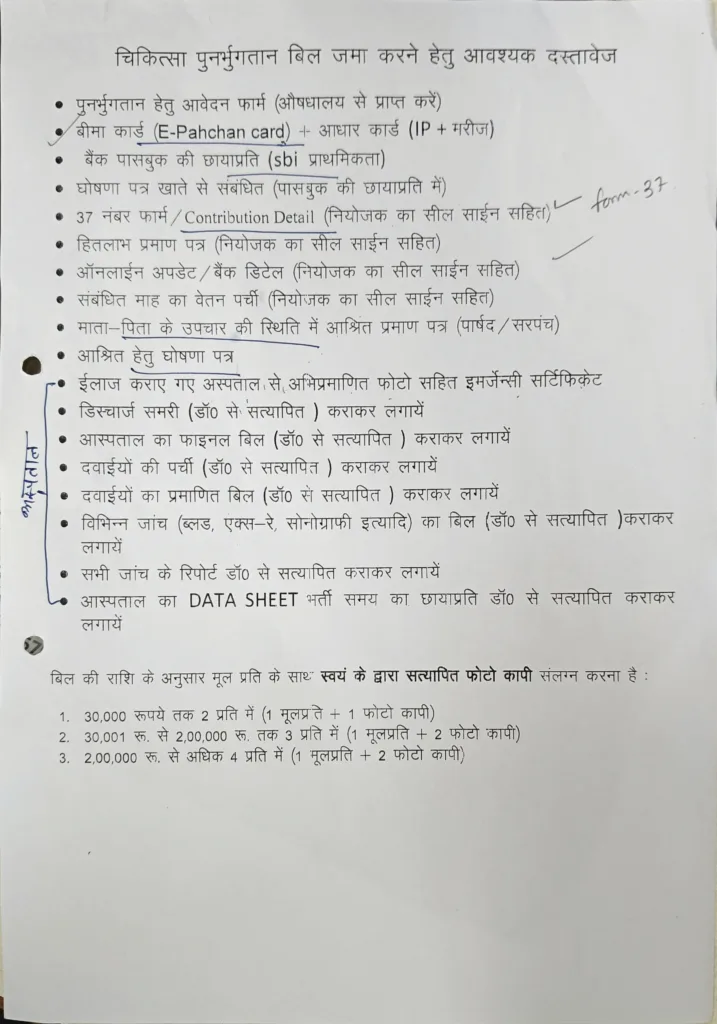 चिकित्सा पुनर्भुगतान बिल जमा करने हेतु आवश्यक दस्तावेज
• पुनर्भुगतान हेतु आवेदन फार्म (औषधालय से प्राप्त करें)
• बीमा कार्ड (E-Pahchan card) + आधार कार्ड (IP + मरीज)
• बैंक पासबुक की छायाप्रति (sbi प्राथमिकता)
• घोषणा पत्र खाते से संबंधित (पासबुक की छायाप्रति में)
• 37 नंबर फार्म/Contribution Detail (नियोजक का सील साईन सहित) form-37
• हितलाभ प्रमाण पत्र (नियोजक का सील साईन सहित)
• ऑनलाईन अपडेट/बैंक डिटेल (नियोजक का सील साईन सहित)
• संबंधित माह का वेतन पर्ची (नियोजक का सील साईन सहित)
• माता–पिता के उपचार की स्थिति में आश्रित प्रमाण पत्र (पार्षद/सरपंच)
• आश्रित हेतु घोषणा पत्र
• ईलाज कराए गए अस्पताल से अभिप्रमाणित फोटो सहित इमर्जेन्सी सर्टिफिकेट
• डिस्चार्ज समरी (डॉ0 से सत्यापित ) कराकर लगायें
• आस्पताल का फाइनल बिल (डॉ0 से सत्यापित ) कराकर लगायें
• दवाईयों की पर्ची (डॉ0 से सत्यापित ) कराकर लगायें
• दवाईयों का प्रमाणित बिल (डॉ0 से सत्यापित ) कराकर लगायें
• विभिन्न जांच (ब्लड, एक्स–रे, सोनोग्राफी इत्यादि) का बिल (डॉ0 से सत्यापित )कराकर
लगायें
• सभी जांच के रिपोर्ट डॉ0 से सत्यापित कराकर लगायें
• आस्पताल का DATA SHEET भर्ती समय का छायाप्रति डॉ0 से सत्यापित कराकर
लगायें
आस्पताल
बिल की राशि के अनुसार मूल प्रति के साथ स्वयं के द्वारा सत्यापित फोटो कापी संलग्न करना है :
1. 30,000 रूपये तक 2 प्रति में (1 मूलप्रति + 1 फोटो कापी)
2. 30,001 रू. से 2,00,000 रू. तक 3 प्रति में (1 मूलप्रति + 2 फोटो कापी)
3. 2,00,000 रू. से अधिक 4 प्रति में (1 मूलप्रति + 2 फोटो कापी)